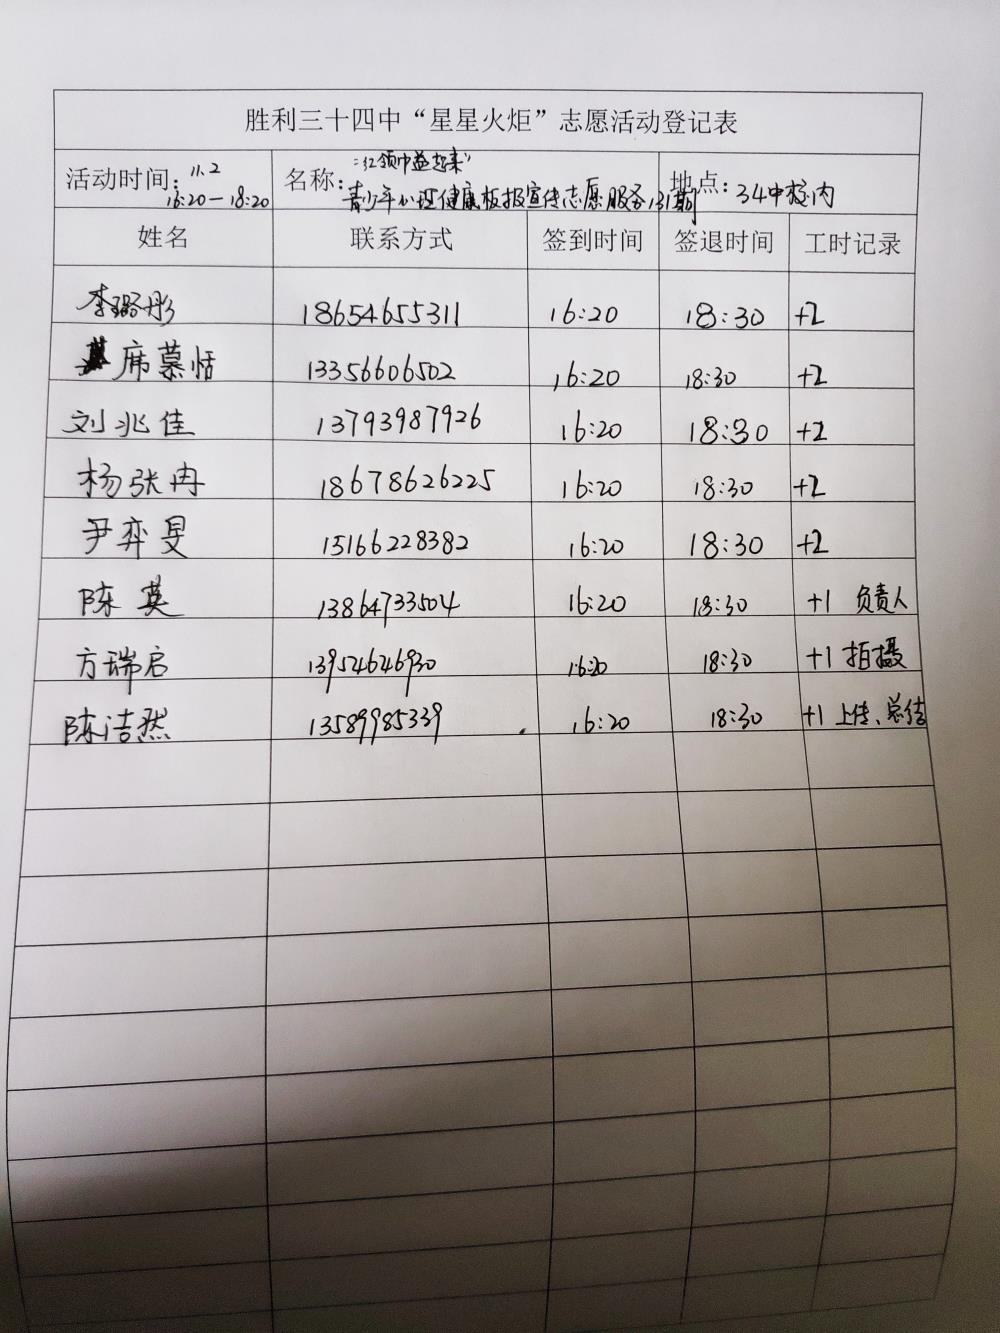 胜利三十四中“星星火炬”志愿活动登记表
活动时间：11.2 16:20—18:20 名称：“红领巾益起来” 青少年心理健康板报宣传志愿服务131期 地点：34中校内
姓名 联系方式 签到时间 签退时间 工时记录
李璐彤 18654655311 16:20 18:30 +2
席慕恬 13356606502 16:20 18:30 +2
刘兆佳 13793987926 16:20 18:30 +2
杨张冉 18678626225 16:20 18:30 +2
尹弈旻 15166228382 16:20 18:30 +2
陈英 13864733504 16:20 18:30 +1 负责人
方瑞启 13954646930 16:20 18:30 +1 拍摄
陈洁然 13589985339 16:20 18:30 +1 上传、总结